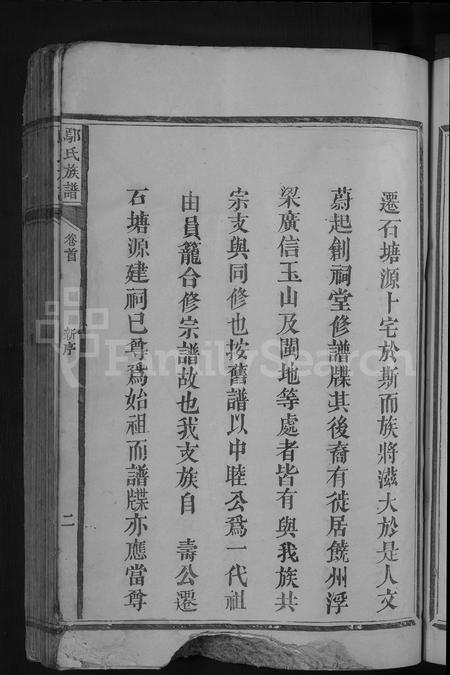 遷石塘源卜宅於斯而族將滋大於是人文
蔚起創祠堂修譜牒其後裔有徙居饒州浮
梁廣信玉山及閩地等處者皆有與我族共
宗支與同修也按舊譜以中睦公爲一代祖
由員籠合修宗譜故也我支族自 壽公遷
石塘源建祠已尊爲始祖而譜牒亦應當尊
鄢氏族譜
卷首
新序
二
FamilySearch